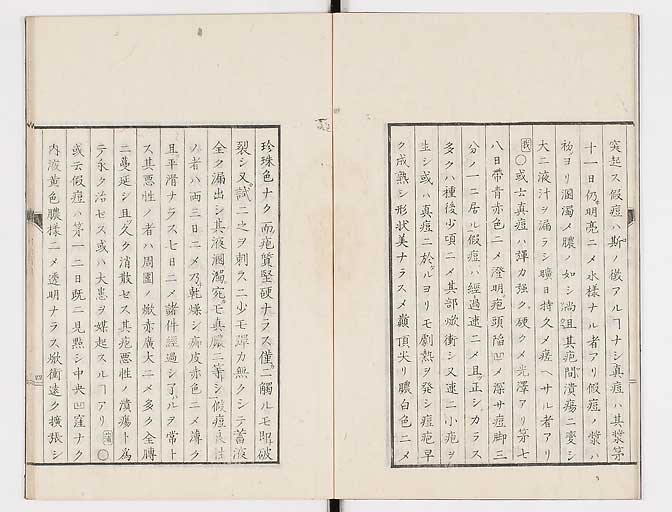 突起ス假痘ハ斯ノ徴アルヿナシ真痘ハ其漿第
十一日仍明亮ニメ水様ナル者アリ假痘ノ漿ハ
初ヨリ溷濁メ膿ノ如シ尚且其疱間潰瘍ニ変シ
大ニ液汁ヲ漏ラシ曠日持久メ瘥ヘサル者アリ
〇或云真痘ハ弾力強ク硬クメ光澤アリ第七
八日帯青赤色ニメ澄明疱頭陥凹メ深サ痘脚三
分ノ一ニ居ル假痘ハ經過速ニメ且正シカラス
多クハ種後少頃ニメ其部焮衝シ又速ニ小疱ヲ
生シ或ハ真痘ニ於ルヨリモ劇熱ヲ発シ痘疱早
ク成熟シ形状美ナラスメ巓頂尖リ膿白色ニメ
珍珠色ナク而疱質堅硬ナラス僅ニ觸ルモ即破
裂シ又試ニ之ヲ刺スニ少モ弾力無クシテ蓄液
全ク漏出シ其液溷濁宛モ真膿ニ等シ假痘良性
ノ者ハ両三日ニメ乃乾燥シ痂皮赤色ニメ薄ク
且平滑ナラス七日ニメ諸件經過シ了ルヲ常ト
ス其悪性ノ者ハ周圍ノ焮赤廣大ニメ多ク全膊
ニ蔓延シ且久ク消散セス其疱悪性ノ潰瘍ト為
テ永ク治セス或ハ大患ヲ媒起スルヿアリ〇
或云假痘ハ第一二日既ニ見點シ中央凹窪ナク
内液黄色膿様ニメ透明ナラス焮衝遠ク擴張シ